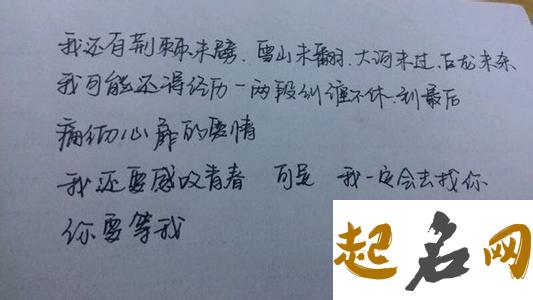 我还有荆棘未劈、雪山未翻、大河未过、巨龙未杀
我可能还得经历一两段纠缠不休、到最后
痛彻心扉的爱情
我还要感叹青春 可是 我一定会去找你
你要等我
起名网